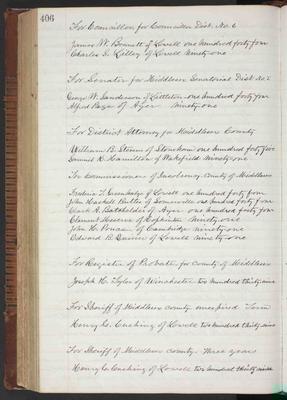 406
For Councillor for Councillor Dist. No. 6
James W. Bennett of Lowell one hundred forty four
Charles S. Lilley of Lowell ninety one
For Senator for Middlesex Senatorial Dist No.
George W. Sanderson of Littleton one hundred forty four
Alfred Page of Ayer ninety one
For District Attorney for Middlesex County
William B. Stevens of Stoneham one hundred forty five
Samuel K. Hamilton of Wakefield ninety one
For Commissioner of Insolvency County of Middlesex
Frederic T. Greenhalge of Lowell one hundred forty four
John Haskell Butler of Somerville one hundred forty four
Batchelder of Ayer one hundred forty four
Clement Meserve of Hopkinton ninety one
John H. Ponce of Cambridge ninety one
Edward B. Quinn of Lowell ninety one
For Register of Probate for County of Middlesex
Joseph H. Tyler of Winchester two hundred thirty nine
For Sheriff of Middlesex county unexpired Term
Henry G. Cushing of Lowell two hundred thirty nine
For Sheriff of Middlesex county. Three years
Henry G. Cushing of Lowell two hundred thirty nine